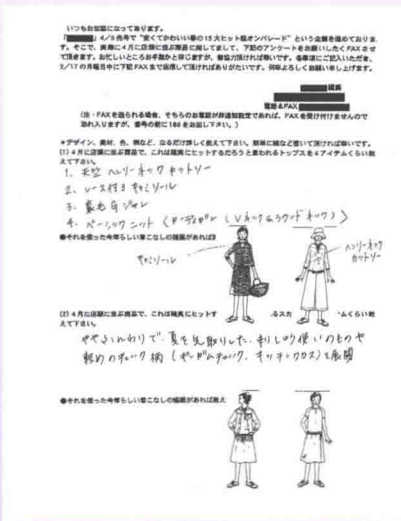 いつもお世話になっております。
4/5売号で"安くてかわいい春の15大ヒット服オンパレード"という企画を進めておりま
す。そこで、実際に4月に店頭に並ぶ商品に絞してまして、下記のアンケートをお願いしたくFAXさせ
て頂きます。お忙しいところお手数かと存じますが、御協力頂ければ幸いです。各事項にご記入いただき、
2/17の月曜日中に下記FAXまで返信して頂ければありがたいです。何卒よろしくお願い申し上げます。
電話&FAX
(注・FAXを送られる場合、そちらのお電話が非通知設定であれば、FAXを受け付けませんので
恐れ入りますが、番号の前に186をお回し下さい。)
*デザイン、素材、色、柄など、なるだけ詳しく教えて下さい。簡単に絵など書いて頂ければ幸いです。
(1)4月に店頭に並ぶ商品で、これは確実にヒットするだろうと思われるトップスを4アイテムくらい教
えて下さい。
1、天竺 ヘンリーネック カットソー
2、レース付き キャミソール
3、裏毛 Gジャン
4、ベーシックニット (カーディガン (Vネック&ラウンドネック))
●それを使った今年らしい着こなしの絵画があれば
キャミソール
ヘンリーネック
カットソー
(2)4月に店頭に並ぶ商品で、これは確実にヒットす るスカ ムくらい教
えて下さい。
ややふんわりで、夏を先取りした、刺しゅう使いのものや
軽めのチェック柄 (ギンガムチェック、キッチンクロス)を展開
●それを使った今年らしい着こなしの絵画があれば教え